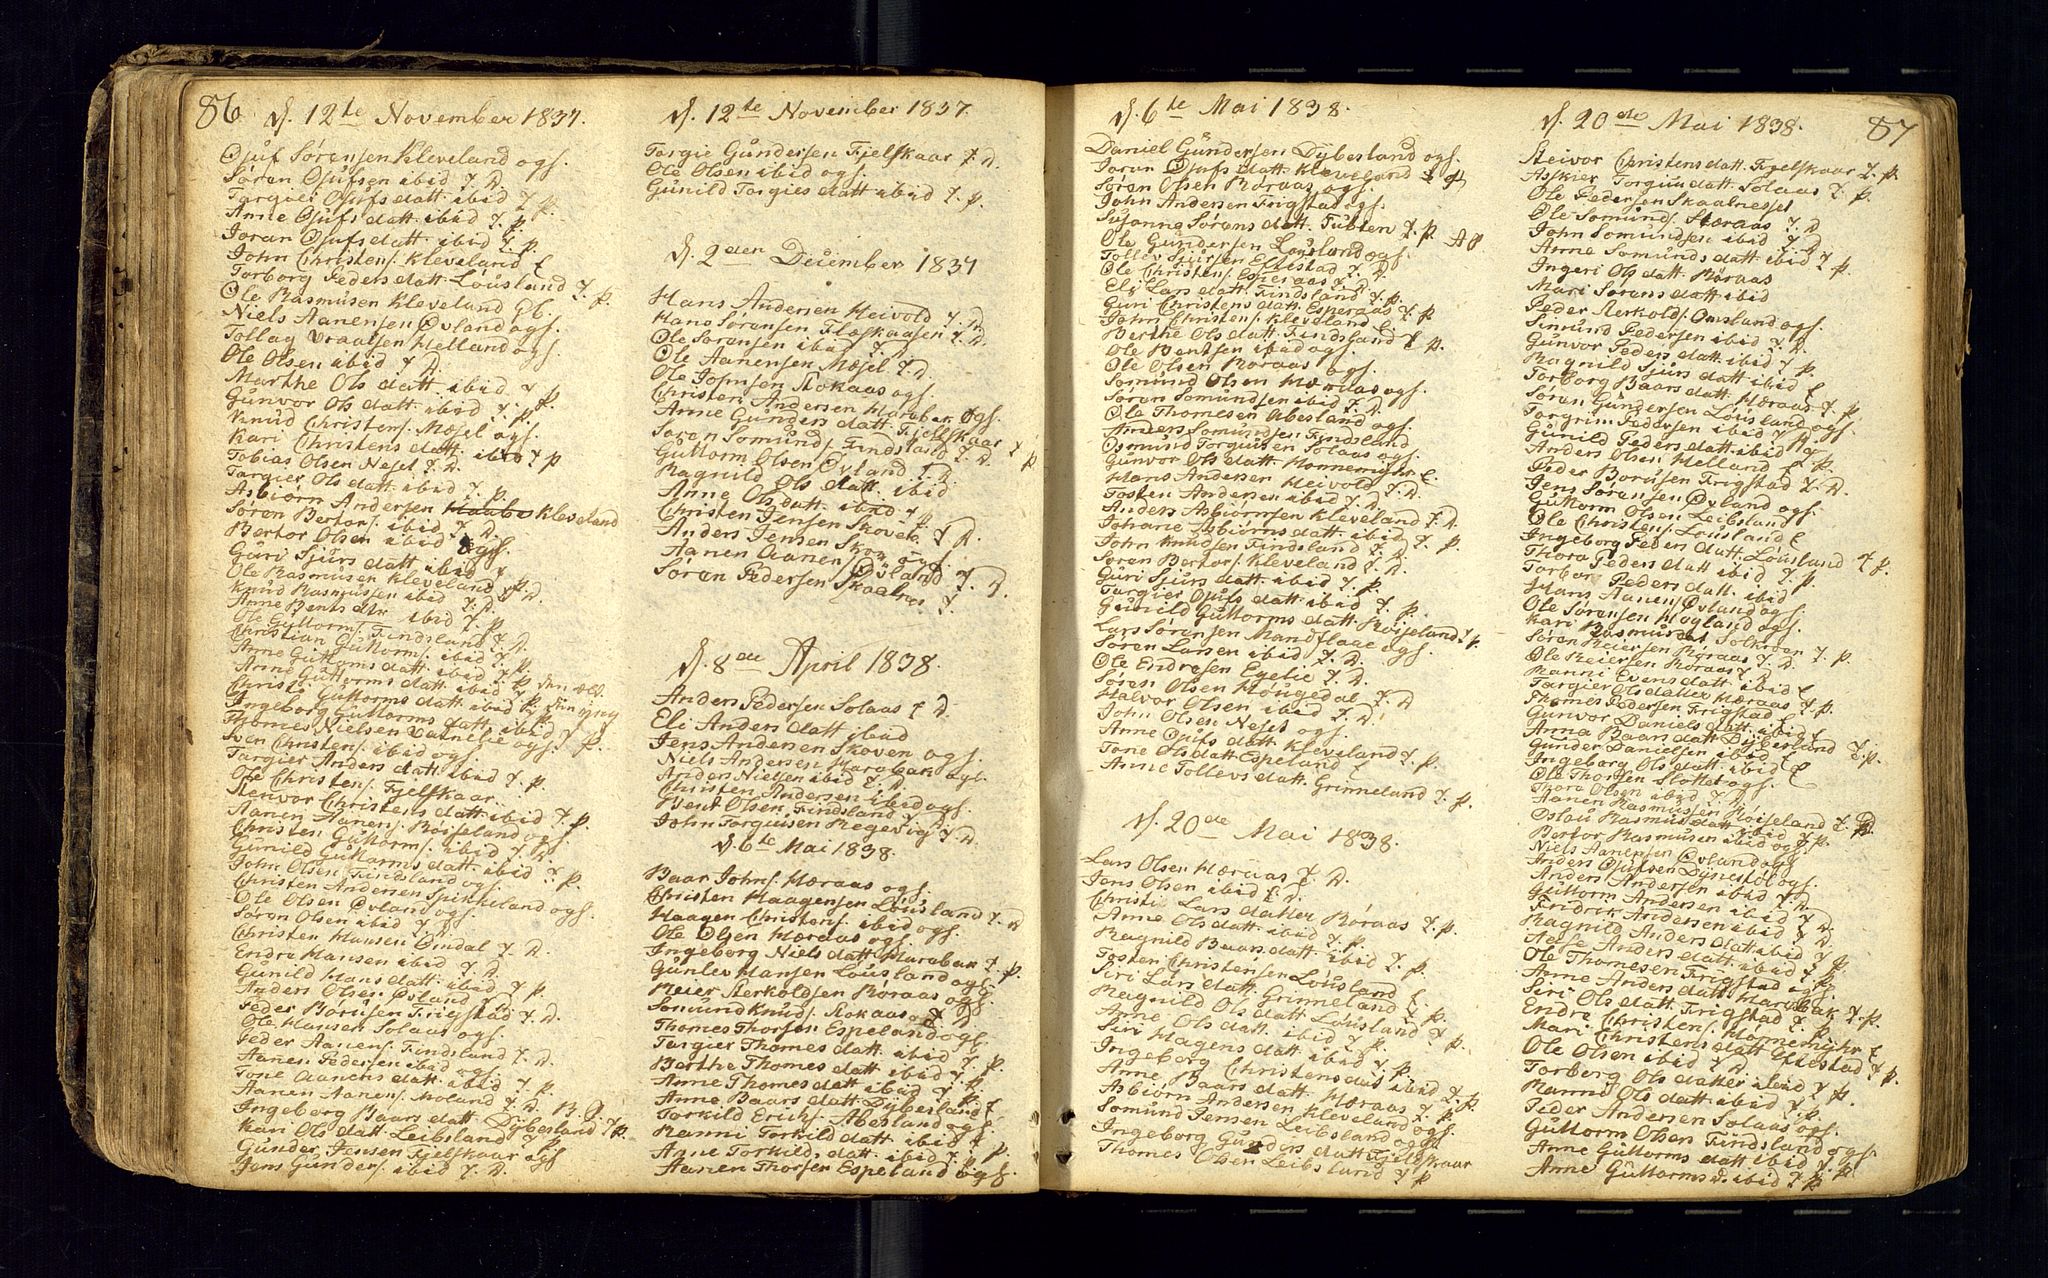 86
d. 12te November 1837.
Ojuf Sørensen Kleveland ogf.
Søren Ojufsen ibid 7. D.
Targier Ojufs datt. ibid 7 p.
Anne Ojufs datt. ibid 7. p.
Joran Ojufs datt. ibid 7. p.
John Christens/. Kleveland E
Torborg Peders datt. Løusland 7. p.
Ole Rasmusen Kleveland
Niels Aanensen Øvland ogf.
Tollag Vraalsen Helland ogf.
Ole Olsen ibid 7 D.
Marthe Ols datt. ibid 7. p.
Gunvor Ols datt. ibid 7. p.
Knud Christens/. Mæsel ogf.
Kari Christens datt. ibid 7 p
Tobias Olsen Nesel 7. D.
Targier Ols datt. ibid 7. p.
Asbiørn Andersen Kleveland
Søren Bertors/. ibid 7. D.
Bertor Olsen ibid ogf.
Guri Sjurs datt ibid 7 p.
Ole Rasmusen Kleveland 7. D.
Knud Rasmussen ibid 7. D.
Anne Bents dtr. ibid 7. p.
Ole Guttorms/. Findsland 7 D
Christian Guttorms/. ibid 7. D.
Anne Guttorms datt. ibid 7. p. den æld.
Anne Guttorms datt. ibid 7 p. den yng
Christi Guttorms datt. ibid 7. p.
Ingeborg Guttorms datt. ibid 7. p.
Thomes Nielsen Vatnelie ogf. 7.
Sven Christens/. ibid ogf.
Targier Anders datt. ibid 7. p.
Ole Christens/. Fjelskaar.
Stenvor Christens datt. ibid 7. p.
Aanen Aanens/. Røiseland ogf.
Christen Guttorms/. ibid 7. D.
Gunild Guttorms datt. ibid 7. p.
John Olsen Findsland ogf.
Christen Andersen Spikkeland ogf.
Ole Olsen Øvland ogf.
Søren Olsen ibid 7. D.
Christen Hansen Omdal 7. D.
Endre Hansen ibid 7. D.
Gunild Hans datt. ibid 7. p.
Anders Olsen Øvland 7. D
Peder Borusen Frigstad 7. D.
Ole Hansen Solaas ogf.
Peder Aanens/. Findsland 7. D.
Aanen Pedersen ibid ogf.
Tone Aanens datt. ibid 7. p.
Aanen Aanens/. Moland 7. D.
Ingeborg Baars datt. Dybesland 7 p.
Kari Ols datt. Leibsland 7. p.
Gunder Jensen Fjelskaar ogf
Jens Gunders/. ibid 7. D.
d. 12te November 1837.
Targie Gundersen Fjelskaar 7. D.
Ole Olsen ibid ogf.
Gunild Targies datt ibid 7. p.
d. 2den December 1837
Hans Andersen Heivold 7. D
Hans Sørensen 7. D.
Ole Sørensen ibid 7. D.
Ole Aanensen Mæsel 7. D.
Ole Johnsen Stokaas ogf.
Christen Andersen Marabak ogf.
Anne Gunders datt. Fjelskaar 7 p
Søren Somund/. Findsland 7. D
Guttorm Olsen Øvland 7. D.
Ragnild Ols datt. ibid
Anne Ols datt. ibid 7. p.
Christen Jensen Skoven 7 D.
Anders Jensen Skov ogf.
Aanen Aanens/. Øvland 7. D.
Søren Pedersen Skaalnes 7.
d. 8de April 1838.
Anders Pedersen Solaas 7 D.
Eli Anders datt ibid
Jens Andersen Skoven ogf.
Niels Andersen Marabak ogf.
Anders Nielsen ibid 7. D.
Christen Andersen ibid ogf.
Bent Olsen Findsland 7.
John Torguisen Regevig 7. D.
d. 6te Mai 1838.
Baar Johns/. Hæraas ogf.
Christen Haagensen Løusland 7. D
Haagen Christens/. ibid ogf.
Ole Olsen Hæraas ogf.
Ingeborg Niels datt Marabak 7. p.
Gunlev Hansen Løusland ogf.
Reier Sterkoldsen Røraas ogf.
Somund Knuds/. Stokaas ogf
Thomes Thorsen Espeland ogf.
Targier Thomes datt. ibid 7. p.
Berthe Thomes datt ibid 7. p
Anne Thomes datt ibid 7. p.
Anne Baars datt. Dybesland E
Torkild Erichs/. Abesland ogf.
Ranni Torkild datt. ibid E
Anne Torkilds datt. ibid 7. p.
Aanen Thorsen Espeland ogf.
d. 6te Mai 1838.
Daniel Gundersen Dybesland ogf.
Joran Ojufs datt. Kleveland
Søren Olsen Røraas ogf.
John Andersen Frigstad ogf.
Susanna Sørens datt. Tubten 7. p.
Ole Gundersen Løusland ogf.
Tollev Sjursen Eftestad 7. D.
Ole Christens/. Esperaas 7. D
Eli Lars datt. Findsland 7. p.
Guri Christens datt. Esperaas 7. p
John Christens/. Kleveland E
Berthe Ols datt. Findsland 7 p.
Ole Bentsen ibid ogf.
Ole Olsen Røraas ogf.
Somund Olsen Hæraas ogf.
Søren Somundsen ibid 7. D
Ole Thomesen Abesland ogf.
Anders Somundsen Findsland
Osmund Torguisen Solaas ogf.
Gunvor Ols datt. Honnemyhr E
Hans Andersen Heivold 7. D.
Tosten Andersen ibid 7. D.
Anders Asbiørnsen Kleveland 7. D.
Johane Asbiørns datt. ibid 7. p.
John Knudsen Findsland 7. D.
Søren Bertors/. Kleveland 7. D.
Guri Sjurs datt. ibid 7. p.
Targier Ojufs datt. ibid 7. p.
Gunild Guttorms datt. Røiseland 7 p.
Lars Sørensen Mandflaae ogf.
Søren Larsen ibid 7. D.
Ole Endresen Egelie 7. D
Søren Olsen Hougedal 7. D
Halvor Olsen ibid 7. D.
John Olsen Nesel ogf.
Anne Ojufs datt Kleveland 7. p.
Tone Ols datt Espeland E
Anne Tollevs datt. Grimeland 7. p.
d. 20de Mai 1838.
Lars Olsen Hæraas 7. D.
Jens Olsen ibid 7. D.
Christi Lars datter Røraas 7. p.
Anne Ols datt. ibid 7. p.
Ragnild Baars datt. ibid 7. p.
Tosten Christensen Løusland E.
Siri Lars datt. Grimeland 7. p.
Ragnild Ols datt. Løusland 7 p.
Anne Ols datt. ibid 7. p.
Siri Hagens datt. ibid 7. p.
Ingeborg Christens datt ibid 7. p.
Anne Baars datt. Hæraas 7. p.
Asbiørn Andersen Kleveland ogf
Somund Jensen Leibsland ogf.
Ingeborg Gunders datt Fjelskaar
Thomes Olsen Leibsland 7 p
d. 20de Mai 1838.
87
Steivor Christens datt. Fjelskaar 7. p.
Askier Torguus datt Solaas 7. p.
Ole Pedersen Skaalnessel
Ole Somund/. Storaas 7. D
John Somundsen ibid 7. D
Anne Somunds datt ibid 7. p.
Ingeri Ols datt. Røraas
Mari Sørens datt ibid
Peder Sterkold/. Omsland ogf.
Simund Pedersen ibid 7. D
Gunvor Peders datt ibid 7. p.
Ragnild Sjurs datt. ibid E
Torborg Baars datt. Hæraas 7. p.
Søren Gundersen Løusland ogf.
Torgrim Pedersen ibid 7. D.
Gunild Peders datt. ibid 7. p.
Anders Olsen Helland E
Peder Borusen Frigstad 7. D.
Jens Sørensen Øvland ogf.
Guttorm Olsen Leibsland
Ole Christens/. Løusland E
Ingeborg Peders datt. Løusland 7 p.
Thora Peders datt ibid 7. p.
Torbor Peders datt. ibid
Hans Aanens/. Øvland ogf.
Ole Sørensen Høyland ogf.
Kari Rasmusdat Solkroen 7. p.
Søren Reiersen Røraas 7. D.
Ole Reiersen Røraas 7. D
Ranni Evens datt. ibid E
Targier Ols datter Hæraas 7. p.
Thomes Pedersen Frigstad E
Gunvor Daniels datt. ibid 7
Anna Baars datt. Dyberland 7. p.
Gunder Danielsen ibid E
Ingeborg Ols datt. ibid E
Ole Thorsen Slottet ogf.
Thora Olsen ibid 7. D
Aanen Rasmussen Røiseland 7. D
Oslau Rasmus datt ibid 7. p.
Bertor Rasmusen ibid ogf.
Niels Aanensen Øvland ogf
Anders Ojufsen Dynestøl ogf.
Anders Andersen ibid 7. D.
Guttorm Andersen ibid 7 D
Fridrik Andersen ibid 7. D
Ragnild Anders datt ibid 7 p.
Aase Anders datt. ibid 7. p
Ole Thomesen Frigstad ogf.
Anne Anders datt Marabak 7. p.
Siri Ols datt. Frigstad 7. p.
Endre Christens/. Hønnemyhr E
Mari Christens datt Eftestad 7. p.
Ole Olsen ibid 7. D
Torberg Ols datter ibid 7. p.
Ranni Ols datt. ibid 7. p.
Peder Andersen Solaas ogf.
Guttorm Olsen Findsland ogf.
Anne Guttorms datt. ibid 7. p.
Anne Guttorms d. ibid 7. p.